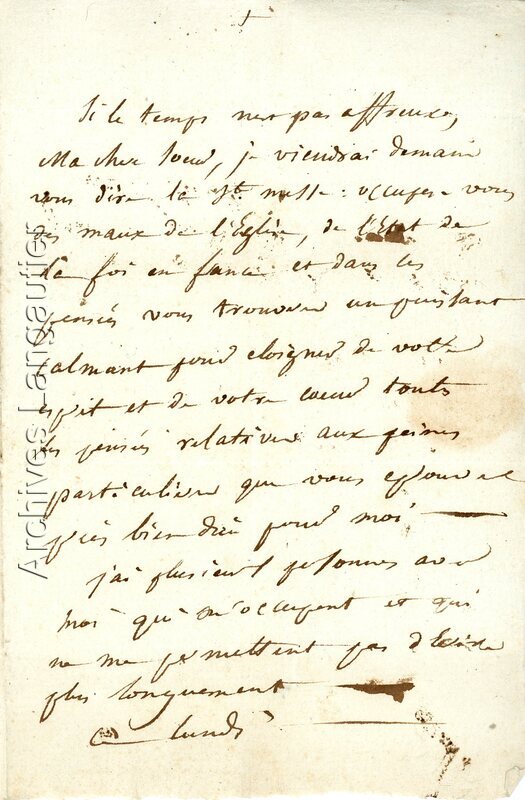 +
Si le temps n'est pas affreux,
Ma cher soeur, je viendrai demain
vous dire la ste messe: occupes vous
des maux de l'Eglise, de l'Etat de
la foi en france et dans ces
pensés vous trouverer un puissant
calmant pour eloigner de votre
esprit et de votre coeur touts
les pensés relatives aux peines
particulieres que vous eprouvez
priés bien dieu pour moi
j'ai plusieurs personnes avec
moi qui m'occupent et qui
ne me permettent pas d'Ecrire
plus longuement
ce lundi
Archives Langautier